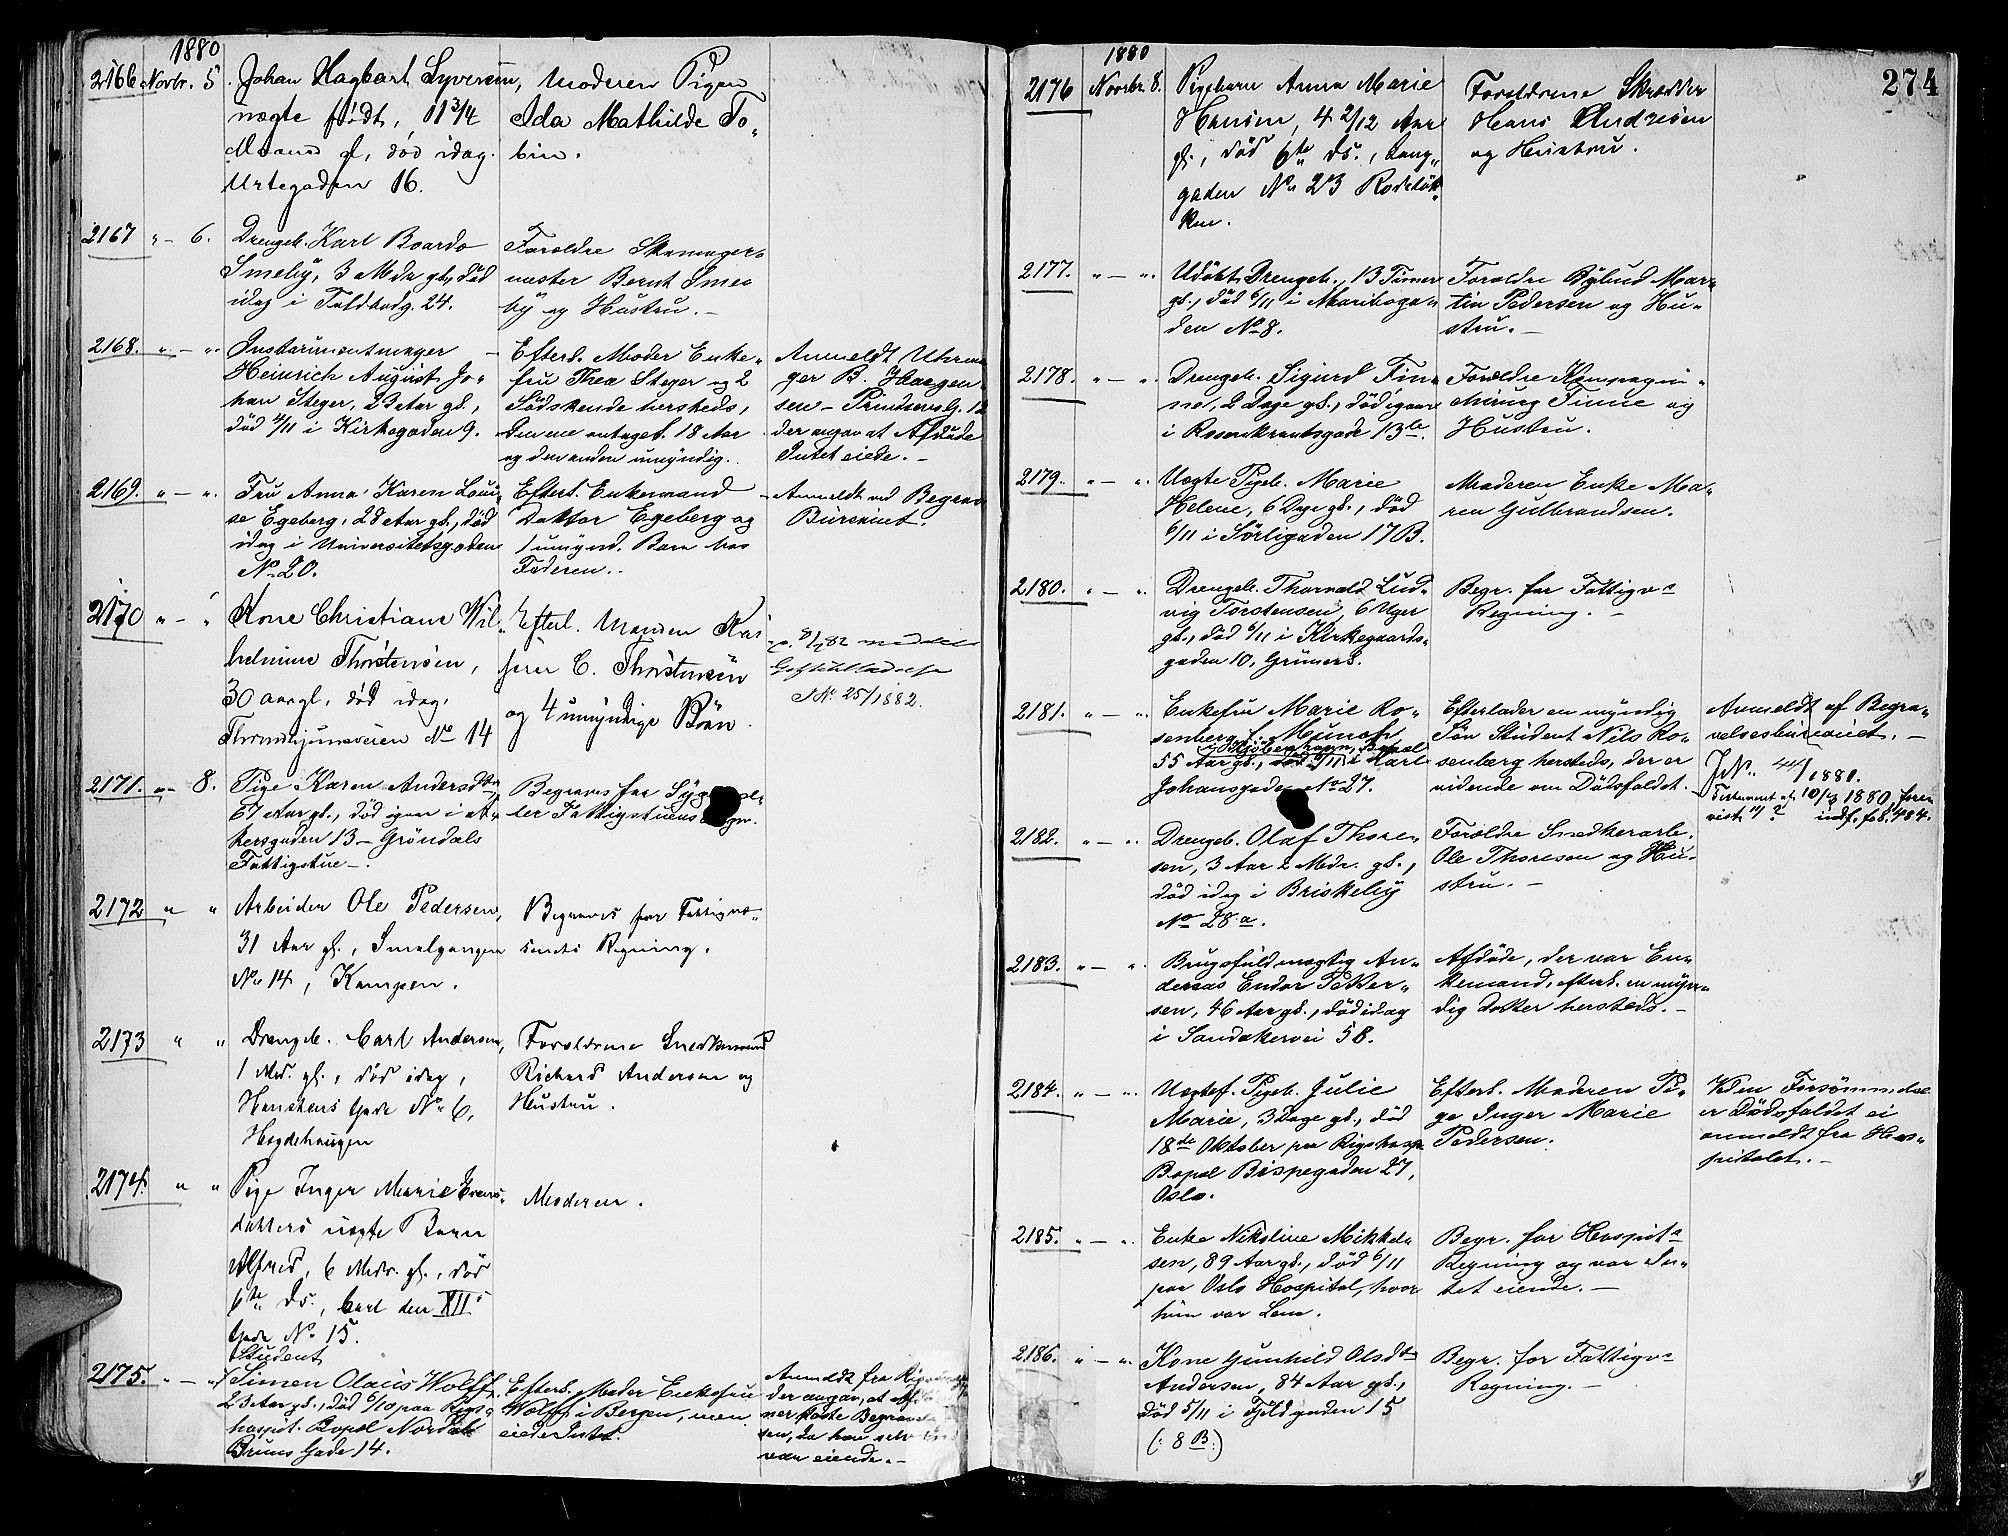 1880
2166 Novbr. 5. Johan Hagbart Syversen,
uægte født, 11 3/4
Maaned gl, død idag.
Urtegaden 16.
Moderen Pigen
Ida Mathilde To-
bin.
2167 " - 6. Drengeb. Karl Boardo
Smeby, 3 Mdr gl., død
idag i Toldbodg. 24.
Forældre Skomager-
mester Bernt Sme-
by og Hustru. -
2168. " - ". Instrumentmager
Heinrich August Jo-
han Steger, 23 Aar gl.,
død 4/11 i Kirkegaden 9.
Efterl. Moder Enke-
fru Thea Steger og 2
Södskende hersteds,
den ene antagel. 18 Aar
og den anden umyndig.
Anmeldt Uhrma-
ger B. Haagen-
sen - Prindsensg. 12
der angav at Afdøde
Intet eiede. -
2169. " - ". Fru Anna Karen Loui-
se Egeberg, 28 Aar gl., död
idag i Universitetsgaden
No 20.
Efterl. Enkemand
Doktor Egeberg og
1 umynd. Barn hos
Faderen. -
Anmeldt ved Begrav.
Bureauet.
2170 " - " Kone Christiane Wil-
helmine Thorstensen,
30 aar gl, død idag,
Throndhjemsveien No 14
Efterl. Manden
C. Thorstensen
og 4 umyndige Børn.
8/2 82
JNo 25/1882.
2171. " - 8. Pige Karen Andersdtr,
67 Aar gl., död igaar i Ak-
kersgaden 13 - Gröndals
Fattigstue -.
Begraves for
ler Fattigstuens Regn.
2172 " " Arbeider Ole Pedersen,
31 Aar gl., Smalgangen
No 14, Kampen.
Begraves for Fattigvæ-
senets Regning.
2173 " " Drengeb. Carl Andersen,
1 Md. gl., død idag,
Gade No 6,
Hægdehaugen
Forældrene Snedkersvend
Richard Andersen og
Hustru.
2174. " " Pige Inger Marie Evens-
datters uægte Barn
Alfred, 6 Mdr. gl., død
6te ds., Carl den XII's
Gade No 15.
Moderen.
2175. " - " Student
Simen Olaus Wolff,
23 Aar gl., død 6/10 paa Rigs-
hospit. Bopæl Nordal
Bruns Gade 14.
Efterl. Moder Enkefru
Wolff i Bergen, men
eiede Intet.
Anmeldt fra
der angav, at
ner koste Begravel-
sen, da han selv Intet
var eiende. -
274
1880
2176 Novbr. 8. Pigebarn Anna Marie
Hansen, 4 2/12 Aar
gl., død 6te ds., Lang-
gaden No 23 Rodelök-
ken.
Forældrene Skrædder
Hans Andresen
og Hustru.
2177. " - ". Udöbt Drengeb., 13 Timer
gl., död 6/11 i Mariboga-
den No 8.
Forældre Bylud Mar-
tin Pedersen og Hu-
stru. -
2178. " - ". Drengeb. Sigurd Fin-
ne, 2 Dage gl., död igaar
i Rosenkrantsgade 13b.
Forældre Kompagni-
chirurg Finne og
Hustru.
2179. " - ". Uægte Pigeb. Marie
Helene, 6 Dage gl., död
6/11 i Sörligaden 17 B.
Moderen Enke Ma-
ren Gulbrandsen.
2180. " - ". Drengeb. Thorvald Lud-
vig Torstensen, 6 Uger
gl., død 6/11 i Kirkegaards-
gaden 10, Grünerl.
Begr. for Fattigv's
Regning.
2181. " - ". Enkefru Marie Ro-
senberg f. Munch
55 Aar gl., död 2/11 i Kjöbenhavn, Bopæl Karl
Johansgaden No 27.
Efterlader en myndig
Sön Student Nils Ro-
senberg hersteds, der er
vidende om Dödsfaldet.
Anmeldt af Begra-
velsesbureauet. -
JNo. 44/1881.
Testament af 10/ 1880
indf. fol. 484.
2182. " - ". Drengeb. Olaf Thore-
sen, 3 Aar 2 Mdr. gl.,
död idag i Briskeby
No 28 a.
Forældre Snedkerarb.
Ole Thoresen og Hu-
stru. -
2183. " - ". Brugsfuldmægtig An-
dersas Endor Petter-
sen, 46 Aar gl., död idag
i Sandakervei 58.
Afdöde, der var En-
kemand, efterl. en myn-
dig Datter hersteds. -
2184. " - ". Uægtef. Pigeb. Julie
Marie, 3 Dage gl., død
18de Oktober paa Rigshosp.
Bopæl Bispegaden 27,
Oslo.
Efterl. Moderen Pi-
ge Inger Marie
Pedersen.
Ved en Forsömmelse
er Dödsfaldet ei
anmeldt fra Hos-
pitalet. -
2185. " - ". Enke Nikoline Mikkel-
sen, 89 Aar gl., död 6/11
paa Oslo Hospital, hvor
hun var Lem.
Begr. for Hospit's
Regning og var In-
tet eiende. -
2186. " - ". Kone Gunhild Olsdtr
Andersen, 84 Aar gl.,
död 5/11 i Fjeldgaden 15
(: 8 B :)
Begr. for Fattigv's
Regning. -